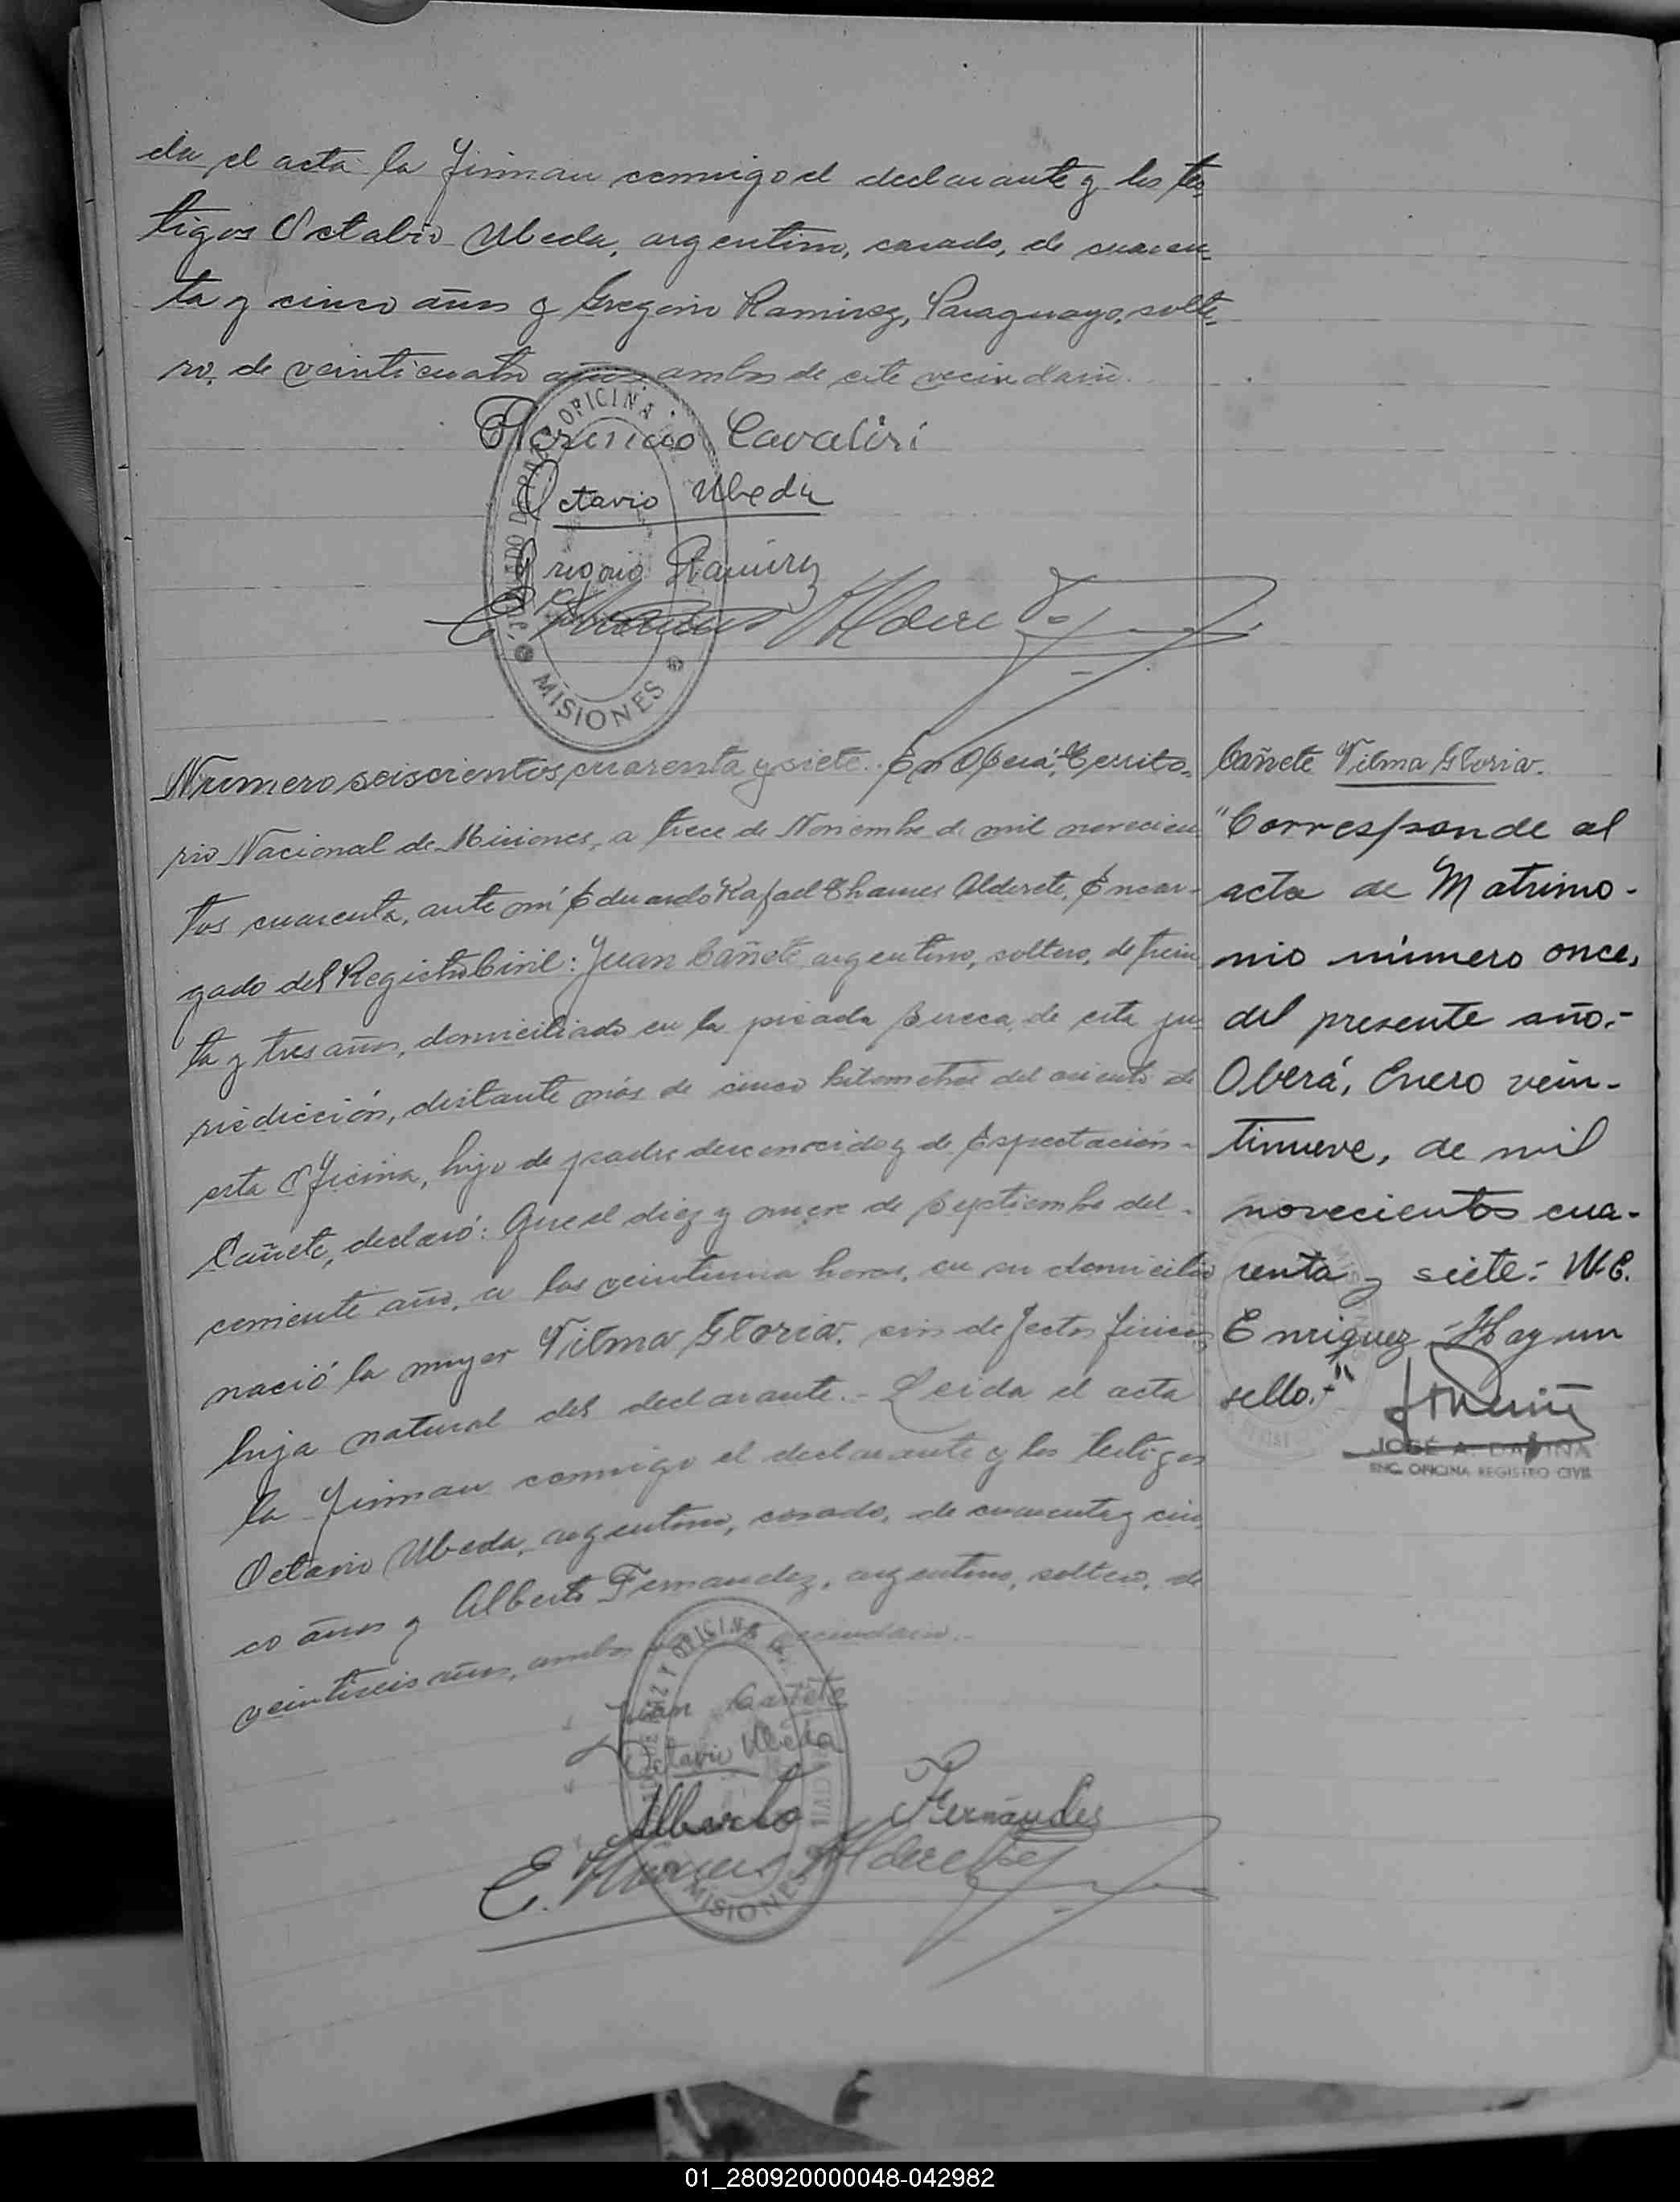 da el acta la firman conmigo el declarante y los tes-
tigos Octabio Ubeda, argentino, casado, de cuaren-
ta y cinco años y Gregorio Ramirez, Paraguayo, solte-
ro, de veinticuatro años ambos de este vecindario.
OFICINA
Cavaliri
Octavio Ubeda
Gregorio Ramirez
E. Thames Alderete
MISIONES
Numero seiscientos cuarenta y siete. En Oberá, Territo-
rio Nacional de Misiones, a trece de Noviembre de mil novecien
tos cuarenta, ante mí Eduardo Rafael Thames Alderete, Encar-
gado del Registro Civil: Juan Cañete, argentino, soltero, de trein
ta y tres años, domiciliado en la picada de esta ju-
risdicción, distante más de cinco kilometros del asiento de
esta Oficina, hijo de padre desconocido y de Espectación
Cañete, declaró: Que el diez y nueve de Septiembre del
corriente año, a las veintiuna horas, en su domicilio
nació la mujer Vilma Gloria. sin defectos fisicos
hija natural del declarante.- Leida el acta
la firman conmigo el declarante y los testigos
Octavio Ubeda, argentino, casado, de cuarenta y cin
co años y Alberto Fernandez, argentino, soltero, de
veintiseis años, ambos vecindario.-
Juan Cañete
Octavio Ubeda
Alberto Fernándes
E. Thames Alderete
MISIONES
Cañete Vilma Gloria.
"Corresponde al
acta de Matrimo-
nio número once,
del presente año.-
Oberá, Enero vein-
tinueve, de mil
novecientos cua-
renta y siete:- W.E.
Enriquez - Hay un
sello.-"
JOSÉ A.
ENC. OFICINA REGISTRO CIVIL
01_280920000048-042982